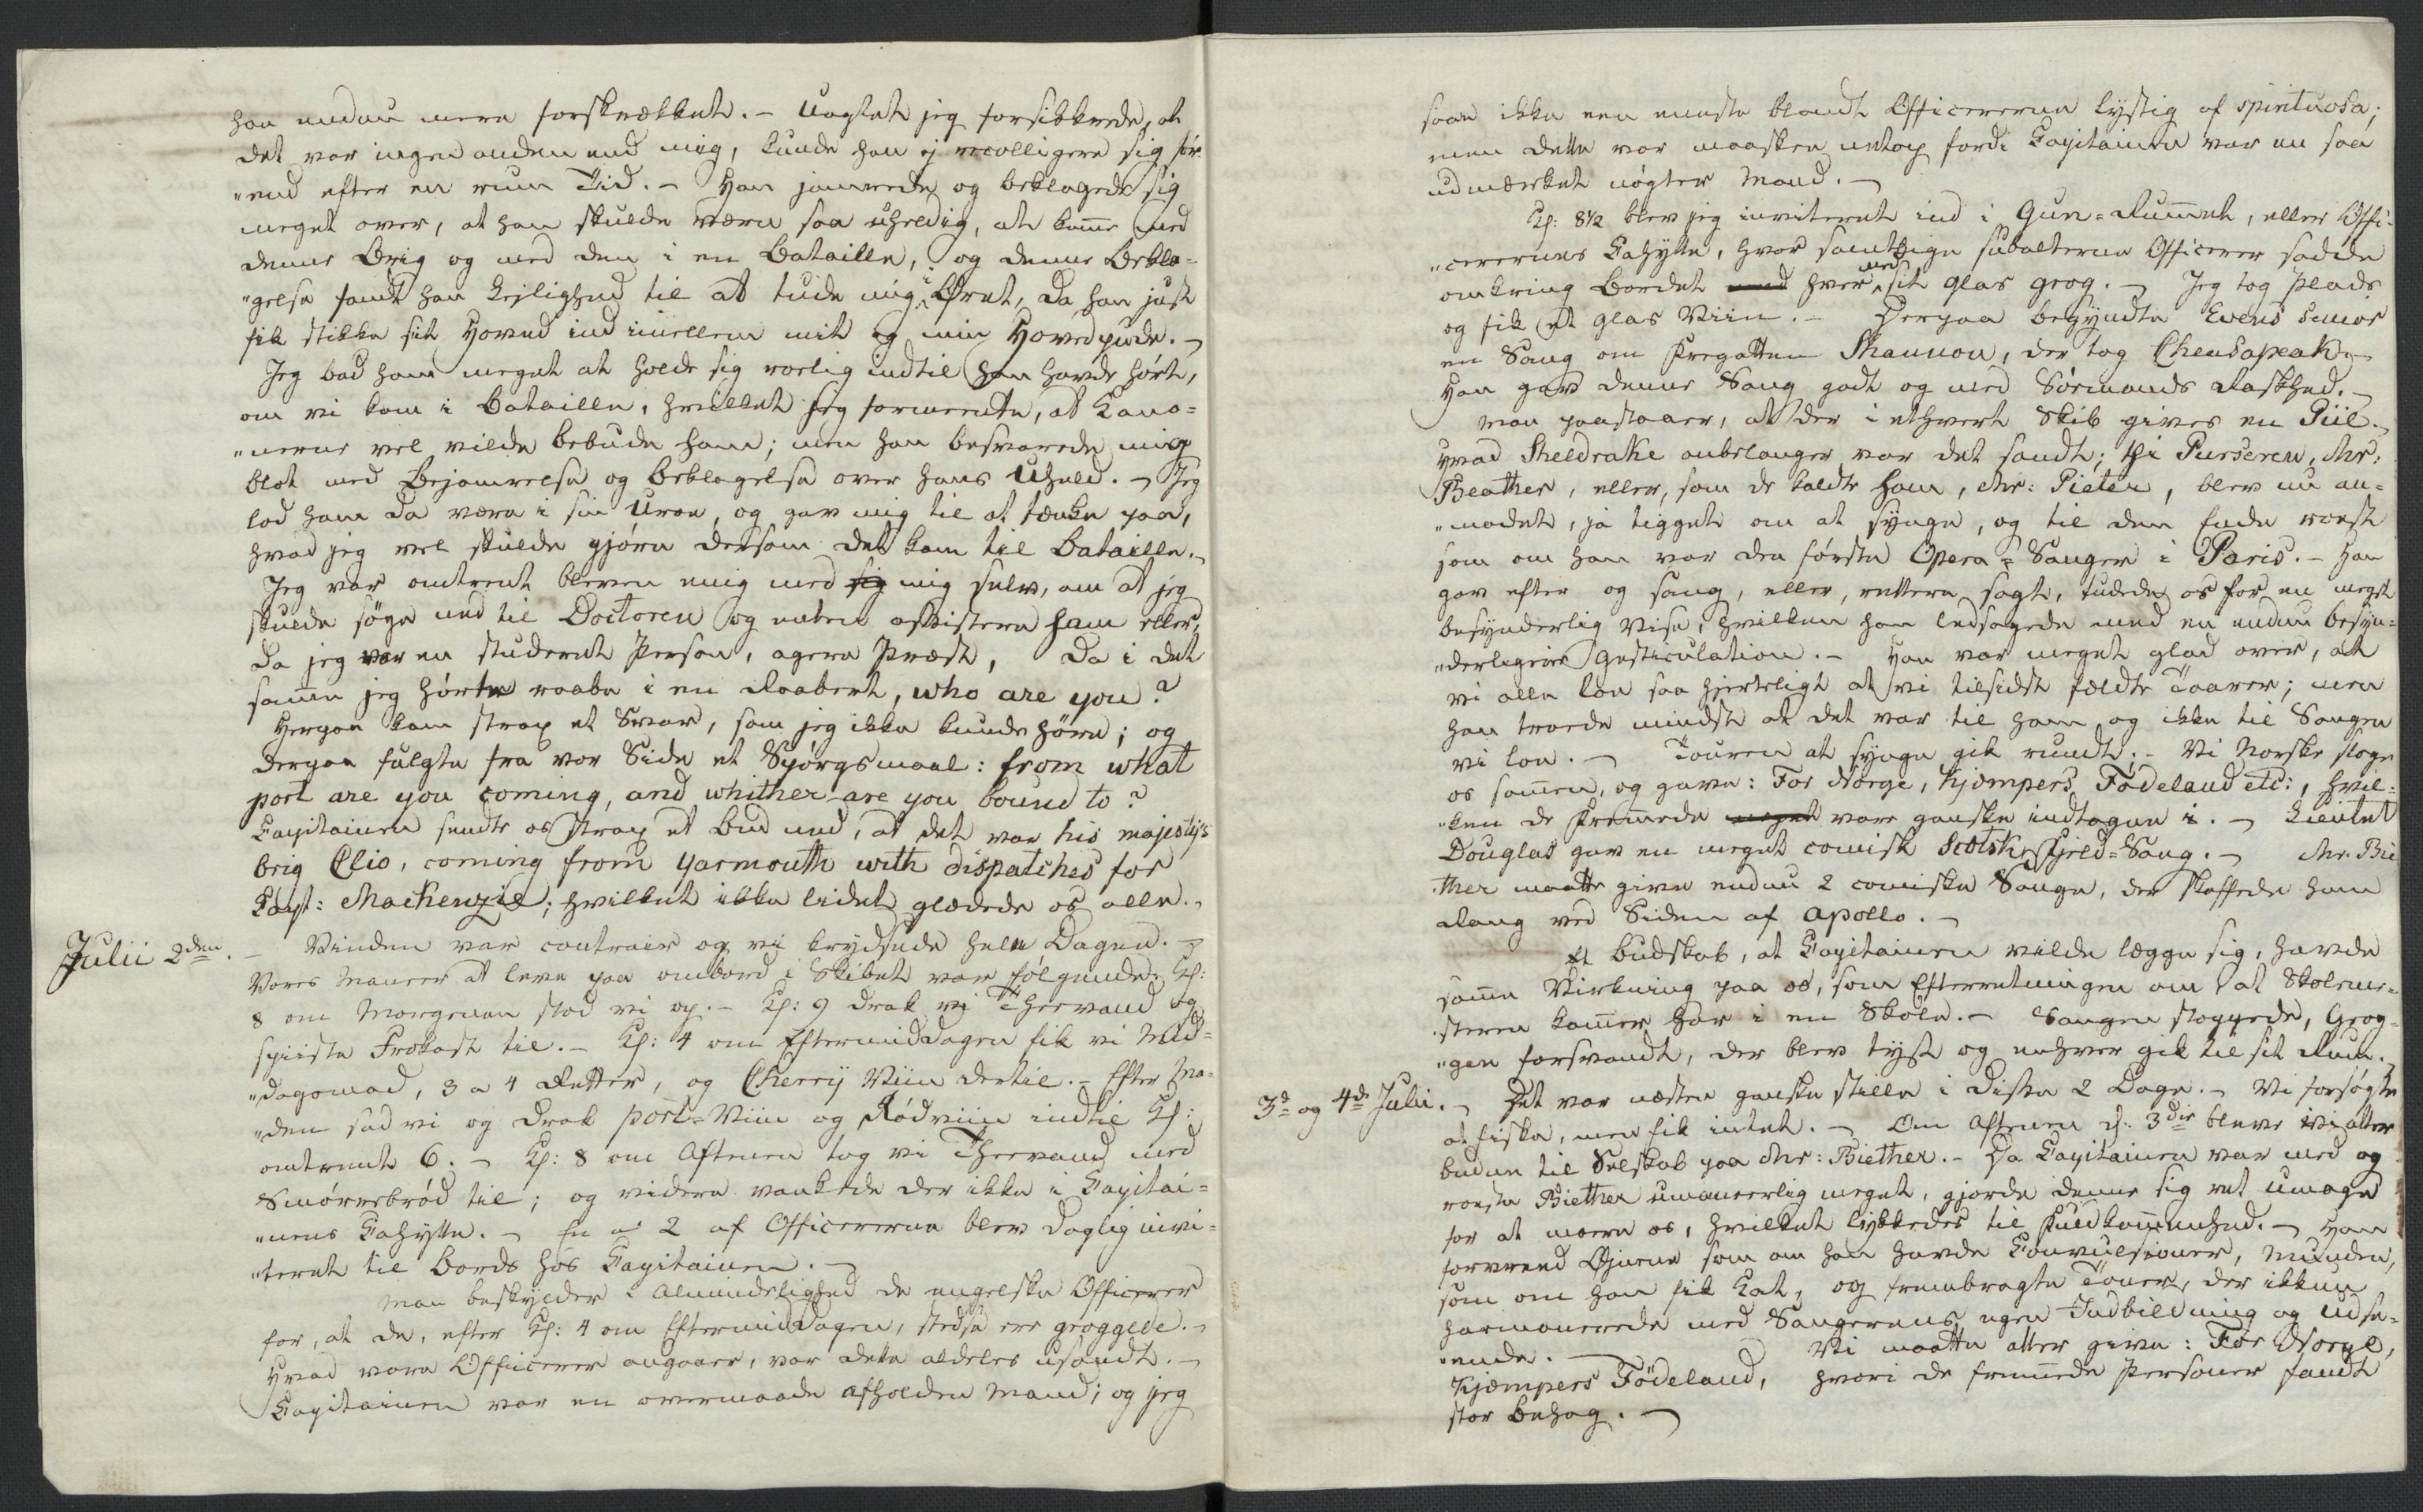 han endnu mere forskrækket. - Uagtet jeg forsikkrede, at
det var ingen anden end mig, kunde han ej recolligere sig før-
"end efter en rum Tid. - Han jamrede og beklagede sig
meget over, at han skulde være saa uheldig, at komme med
denne Brig og med den i en Bataille, og denne Bekla-
"gelse fandt han Lejlighed til at tude mig i Øret, da han just
fik stikke sit Hoved ind imellem mit og min Hovedpude. -
Jeg bad ham meget at holde sig rolig indtil han havde hørt,
om vi kom i Bataille, hvilket jeg formeente, at Kano-
"nerne vel vilde bebude ham; men han besvarede mig
blot med Bejamrelse og Beklagelse over hans Uheld. - Jeg
lod ham da være i sin Uroe, og gav mig til at tænke paa,
hvad jeg vel skulde gjøre dersom det kom til Bataille. -
Jeg var omtrent bleven enig med sig mig selv, om at jeg
skulde søge ned til Doctoren og enten assistere ham eller,
da jeg var en studeret Person, agere Præst, da i det
samme jeg hørte raabe i en Raabert, who are you?
Herpaa kom strax et Svar, som jeg ikke kunde høre; og
derpaa fulgte fra vor Side et Spørgsmaal: from what
port are you coming, and whither are you bound to?
Capitainen sendte os strax et Bud ned, at det var his majesty's
brig Clio, coming from Yarmouth with dispatches for
Capt: Mackenzie; hvilket ikke lidet glædede os alle. -
Julii 2den. - Vinden var contrair og vi krydsede hele Dagen. -
Vores Maneer at leve paa ombord i Skibet var følgende: Kl:
8 om Morgenen stod vi op. - Kl: 9 drak vi Theevand og
spiiste Frokost til. - Kl: 4 om Eftermiddagen fik vi Mid-
"dagsmad, 3 a 4 Retter, og Cherry Viin dertil. - Efter Ma-
"den sad vi og drak port-Viin og Rødviin indtil Kl:
omtrent 6. - Kl: 8 om Aftenen tog vi Theevand med
Smørrebrød til; og videre vankede der ikke i Capitai-
"nens Cahytte. - En a 2 af Officererne blev daglig invi-
"teret til Bords hos Capitainen. -
Man beskylder i Almindelighed de engelske Officerer
for, at de, efter Kl: 4 om Eftermiddagen, stedse ere groggede. -
Hvad vore Officerer angaaer, var dette aldeles usandt. -
Capitainen var en overmaade afholden Mand; og jeg
saae ikke een eneste blandt Officererne lystig af spirituosa;
men dette var maaskee netop fordi Capitainen var en saa
udmærket nøgter Mand. -
Kl: 8½ blev jeg inviteret ind i Gun-Rummet, eller Offi-
"cerernes Cahytte, hvor samtlige subalterne Officerer sadde
omkring Bordet med hver med sit glas grog. - Jeg tog Plads
og fik et glas Viin. - Herpaa begyndte Evens senior
en Sang om Fregatten Shannon, der tog Cheasapeak. -
Han gav denne Sang godt og med Sømands Raskhed. -
Man paastaaer, at der i ethvert Skib gives en Piil. -
Hvad Sheldrake anbelanger var det sandt; thi Purseren, Mr:
Beather, eller, som de kaldte ham, Mr: Pieter, blev nu an-
"modet, ja tigget om at synge, og til den Ende roest
som om han var den første Opera-Sanger i Paris. - Han
gav efter og sang, eller, rettere sagt, tudede os for en meget
besynderlig Vise, hvilken han ledsagede med en endnu besyn-
"derligere Gesticulation. - Han var meget glad over, at
vi alle loe saa hjerteligt at vi tilsidst fældte Taarer; men
han troede mindst at det var til ham og ikke til Sangen
vi loe. - Touren at synge gik rundt. - Vi Norske sloge
os sammen, og gave: For Norge, Kjæmpers Fødeland etc:, hvil-
"ken de Fremmede meget vare ganske indtagne i. - Lieutnt
Douglas gav en meget comisk Scotsk Fjeld-Sang. - Mr. Bie
"ther maatte give endnu 2 comiske Sange, der skaffede ham
Rang ved Siden af Apollo. -
Et Budskab, at Capitainen vilde lægge sig, havde
samme Virkning paa os, som Efterretningen om at Skoleme-
"steren kommer har i en Skole. - Sangen stoppede, Grog-
"gen forsvandt, der blev tyst og enhver gik til sit Rum. -
3d og 4de Julii. - Det var næsten ganske stille i disse 2 Dage. - Vi forsøgte
at fiske, men fik intet. - Om Aftenen d: 3die bleve vi atter
budne til Selskab paa Mr: Biether. - Da Capitainen var med og
roeste Biether umaneerlig meget, gjorde denne sig ret Umage
for at more os, hvilket lykkedes til Fuldkommenhed. - Han
forvred Øjnene som om han havde Convulsioner, Munden,
som om han fik Kat, og frembragte Toner, der ikkun
harmonerede med Sangerens egen Indbildning og Udse-
"ende. - Vi maatte atter give: For Norge,
Kjæmpers Fødeland, hvori de fremmede Personer fandt
stor Behag. -